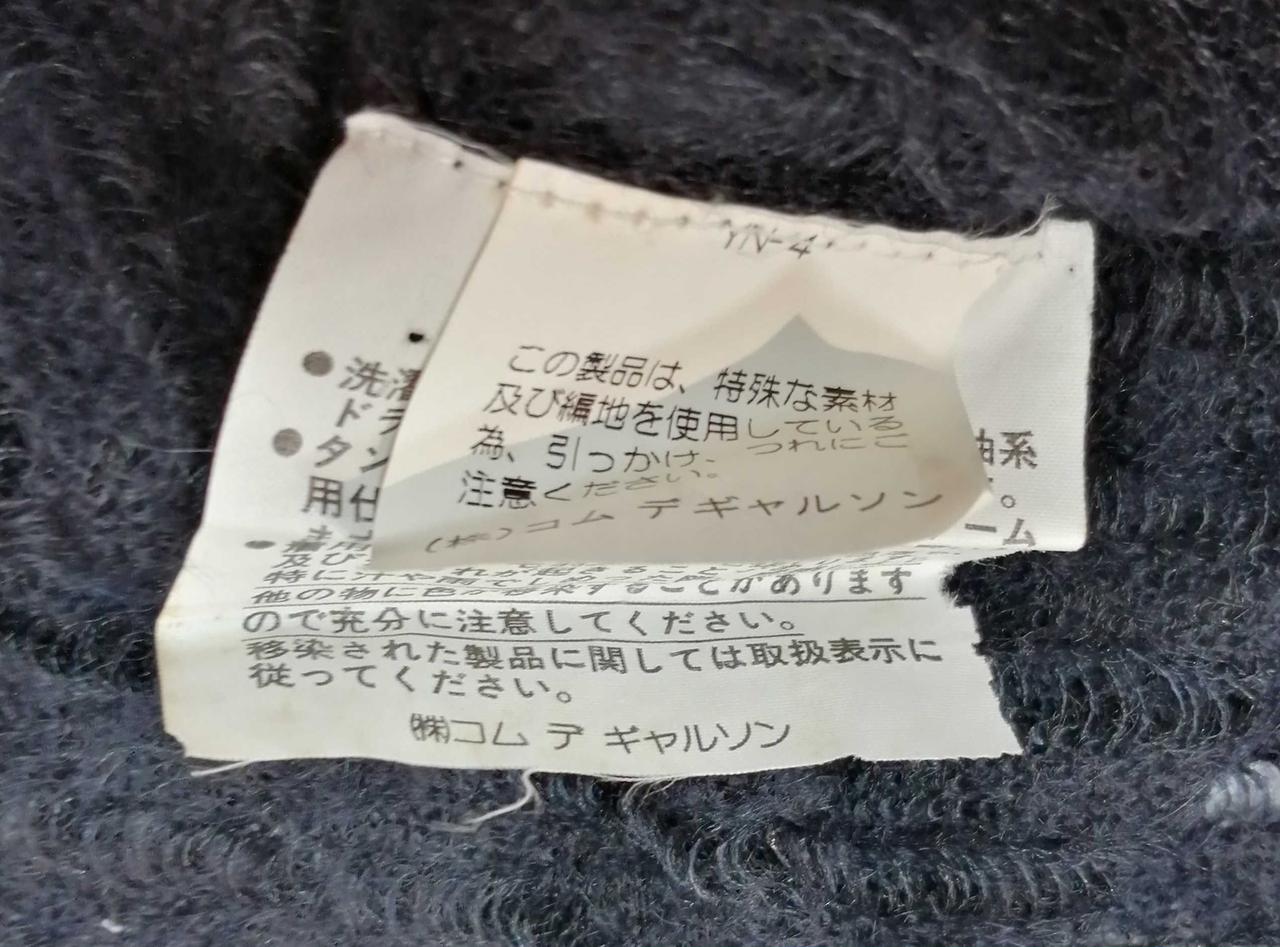 YN-4
この製品は、特殊な素材
及び編地を使用している
為、引っかけ、つれにご
注意ください。
(株)コム デ ギャルソン
洗濯
ド
タン
用仕
油系
。
ーム
及び
他の物に色が移染することがあります
ので充分に注意してください。
移染された製品に関しては取扱表示に
従ってください。
㈱コム デ ギャルソン